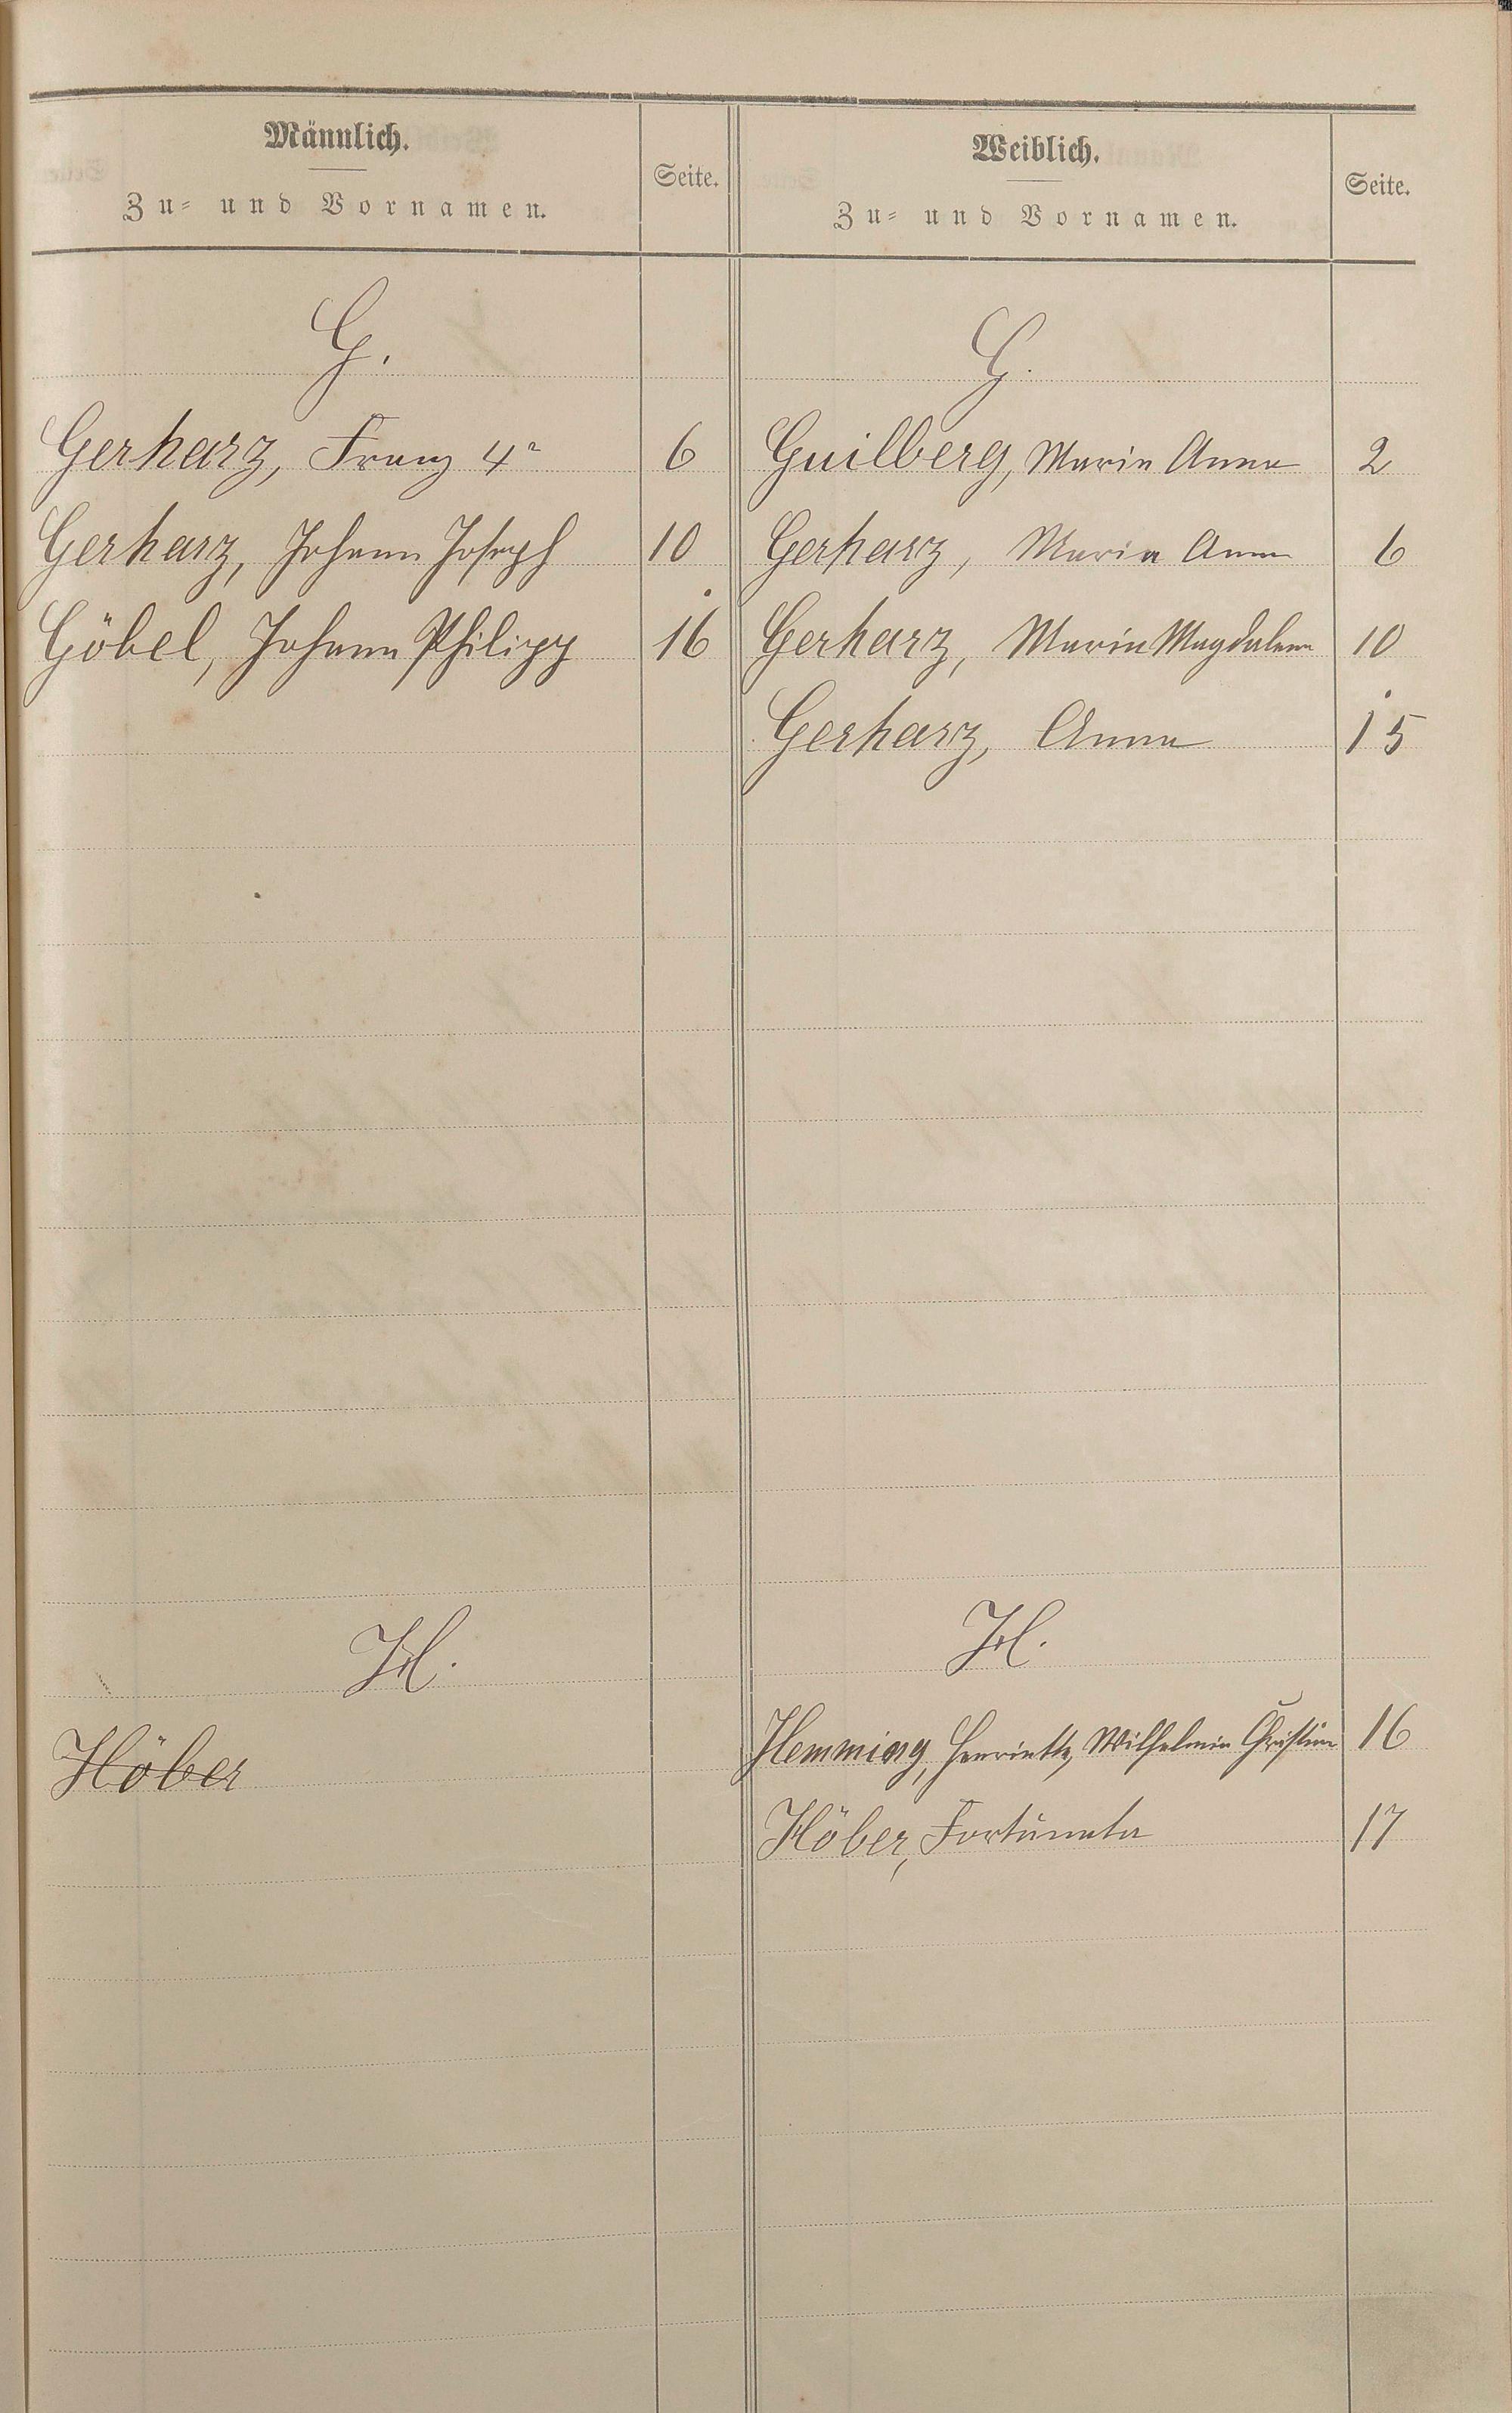 Männlich.
Zu- und Vornamen.
Seite.
Weiblich.
Zu- und Vornamen.
Seite.
G.
Gerharz, Franz 4r 6
Gerharz, Johann Joseph 10
Göbel, Johann Philipp 16
G.
Guilberg, Maria Anna 2
Gerharz, Maria Anna 6
Gerharz, Maria Magdalena 10
Gerharz, Anna 15
H.
Höber
H.
Hemming, Henriette, Wilhelmin Christine 16
Höber, Fortunata 17